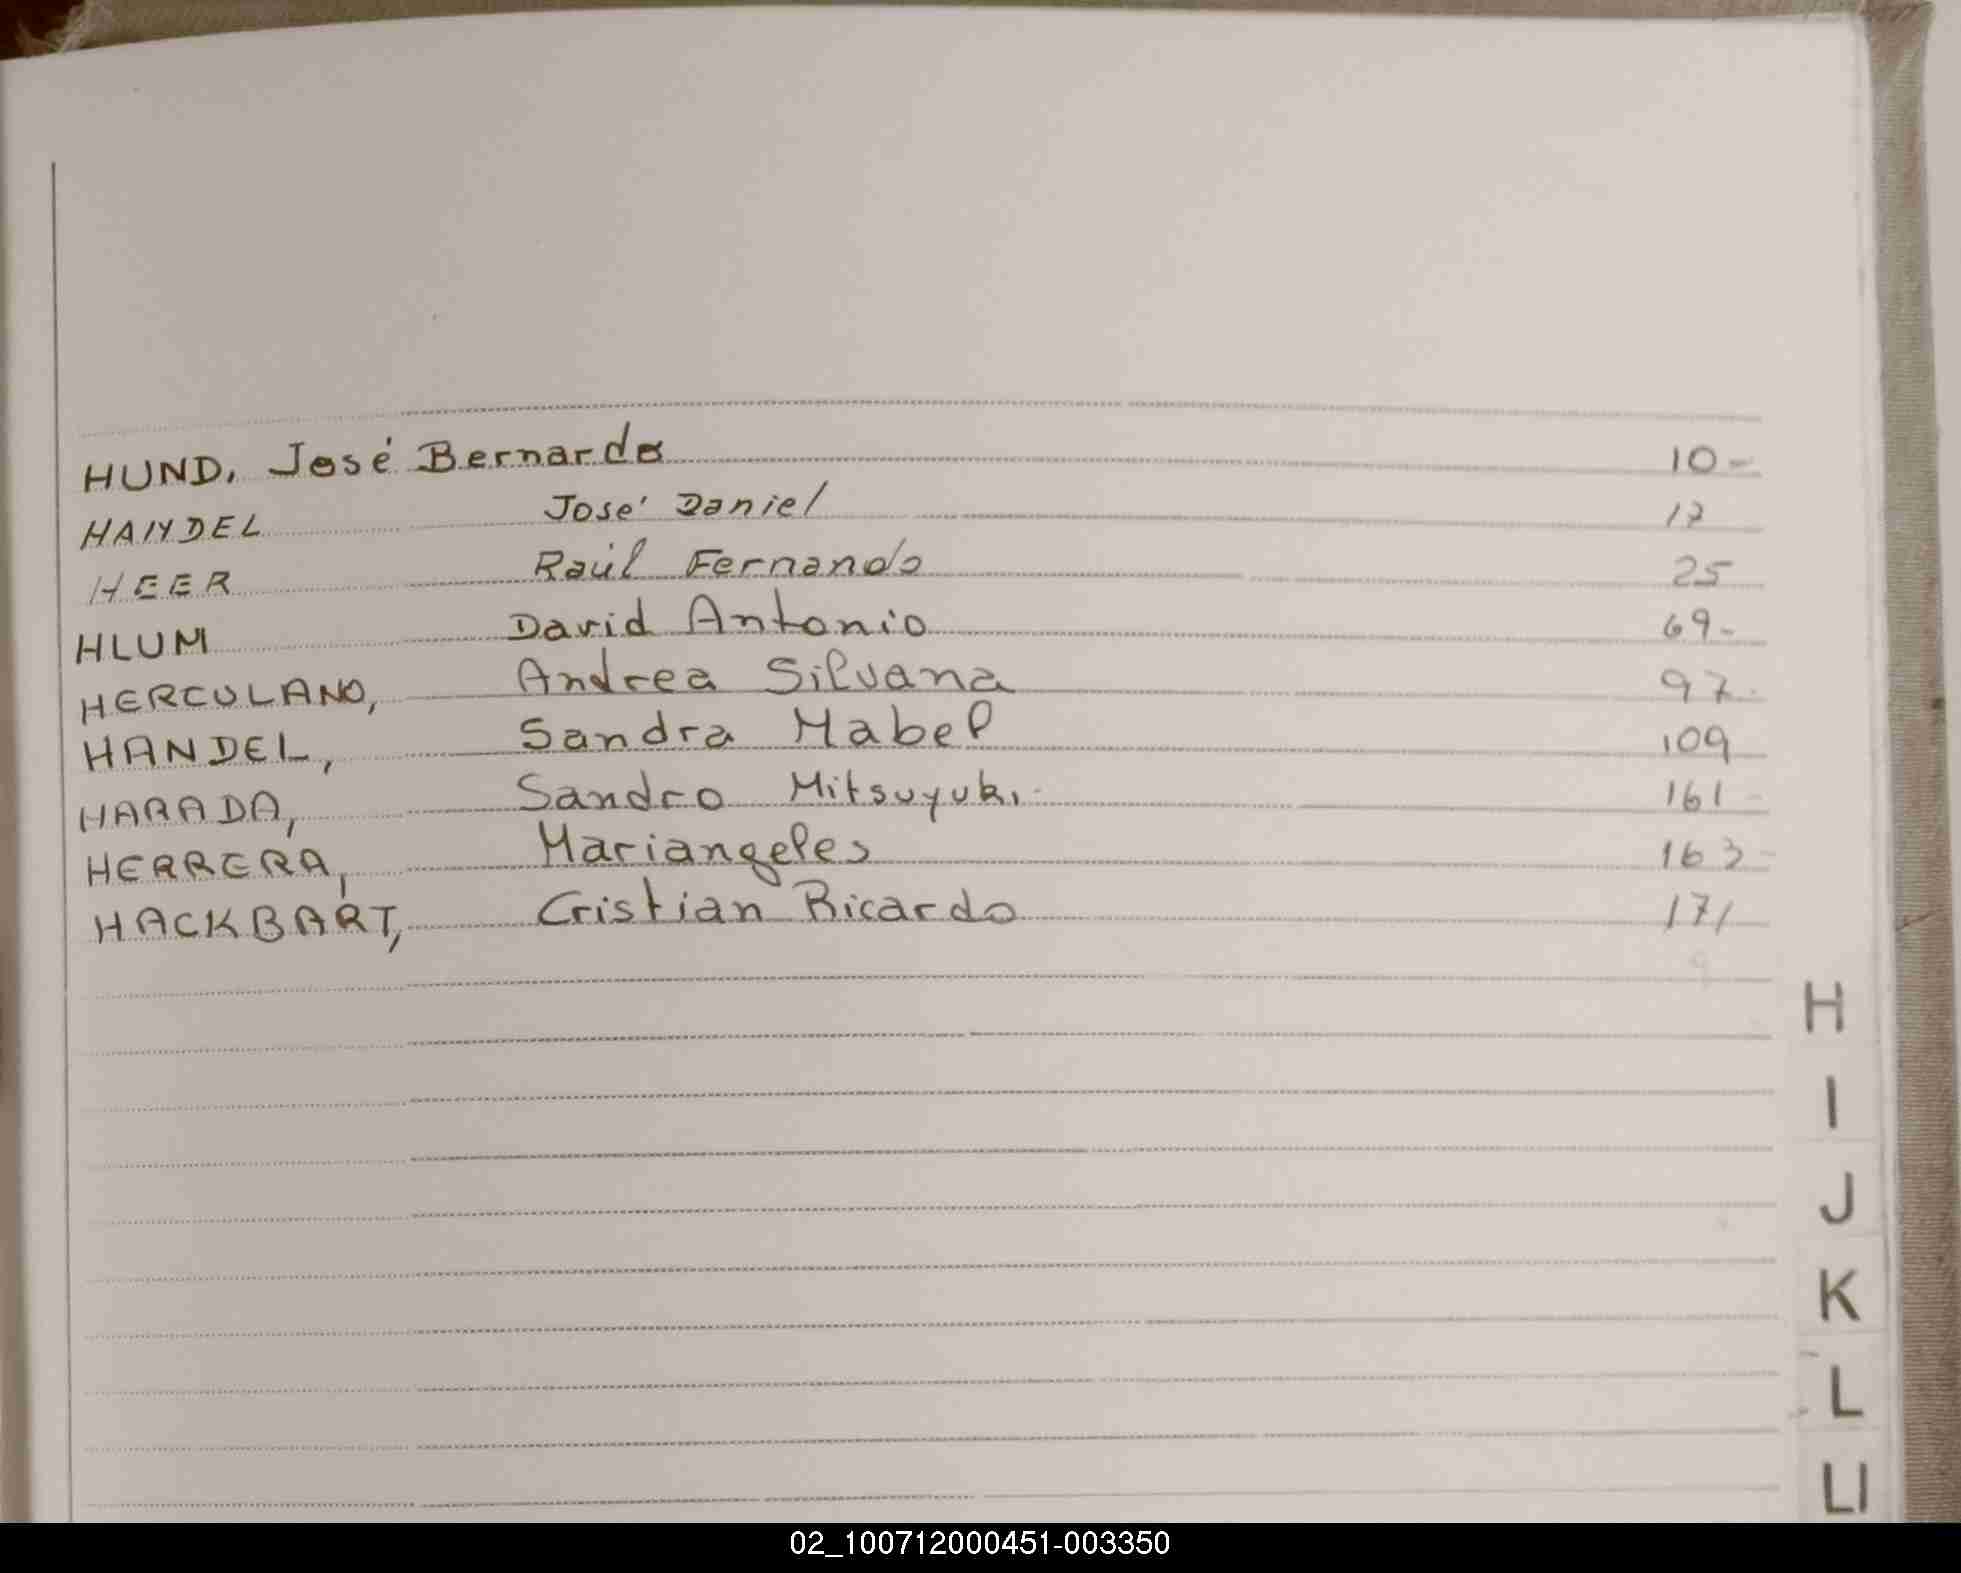 HUND, José Bernardo 10-
HANDEL José Daniel 17
HEER Raúl Fernando 25
HLUM David Antonio 69-
HERCULANO, Andrea Silvana 97-
HANDEL, Sandra Mabel 109
HARADA, Sandro Mitsuyuki 161-
HERRERA, Mariangeles 163-
HACKBART, Cristian Ricardo 171
H
I
J
K
L
Ll
02_100712000451-003350